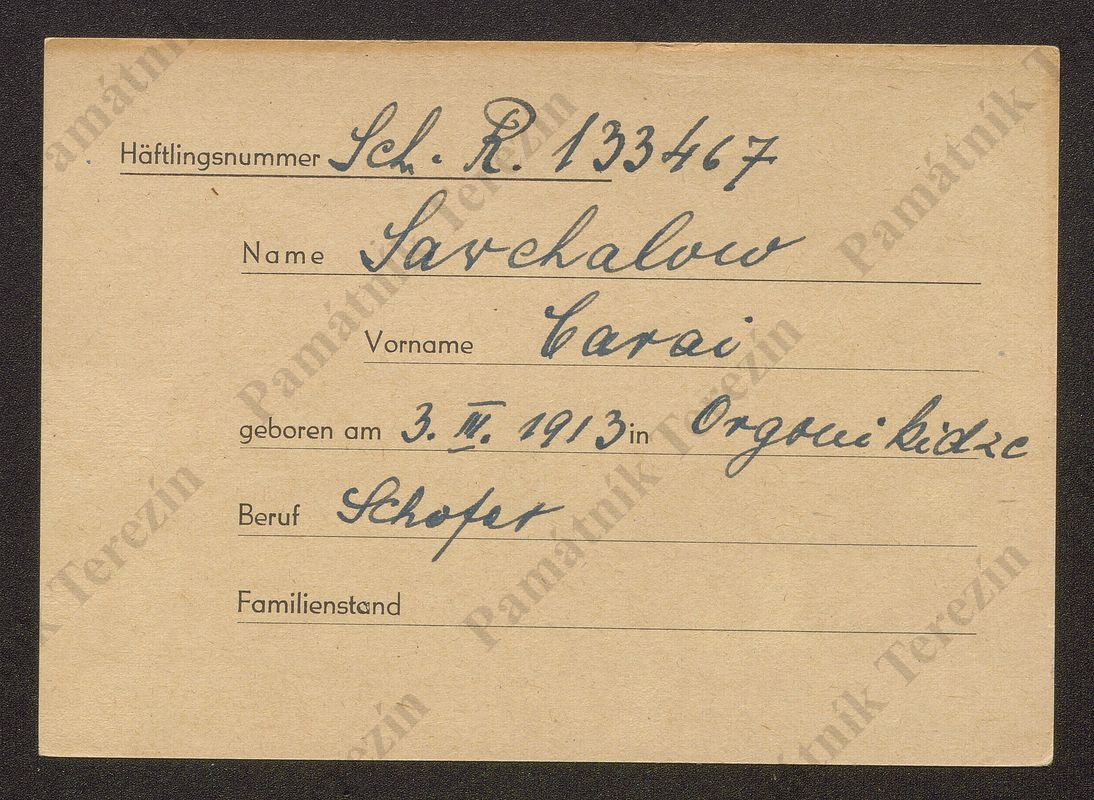 Häftlingsnummer Sch. R. 133467
Name Sarchalow
Vorname Carai
geboren am 3. III. 1913 in Orgonikidze
Beruf Schofer
Familienstand
Památník Terezín